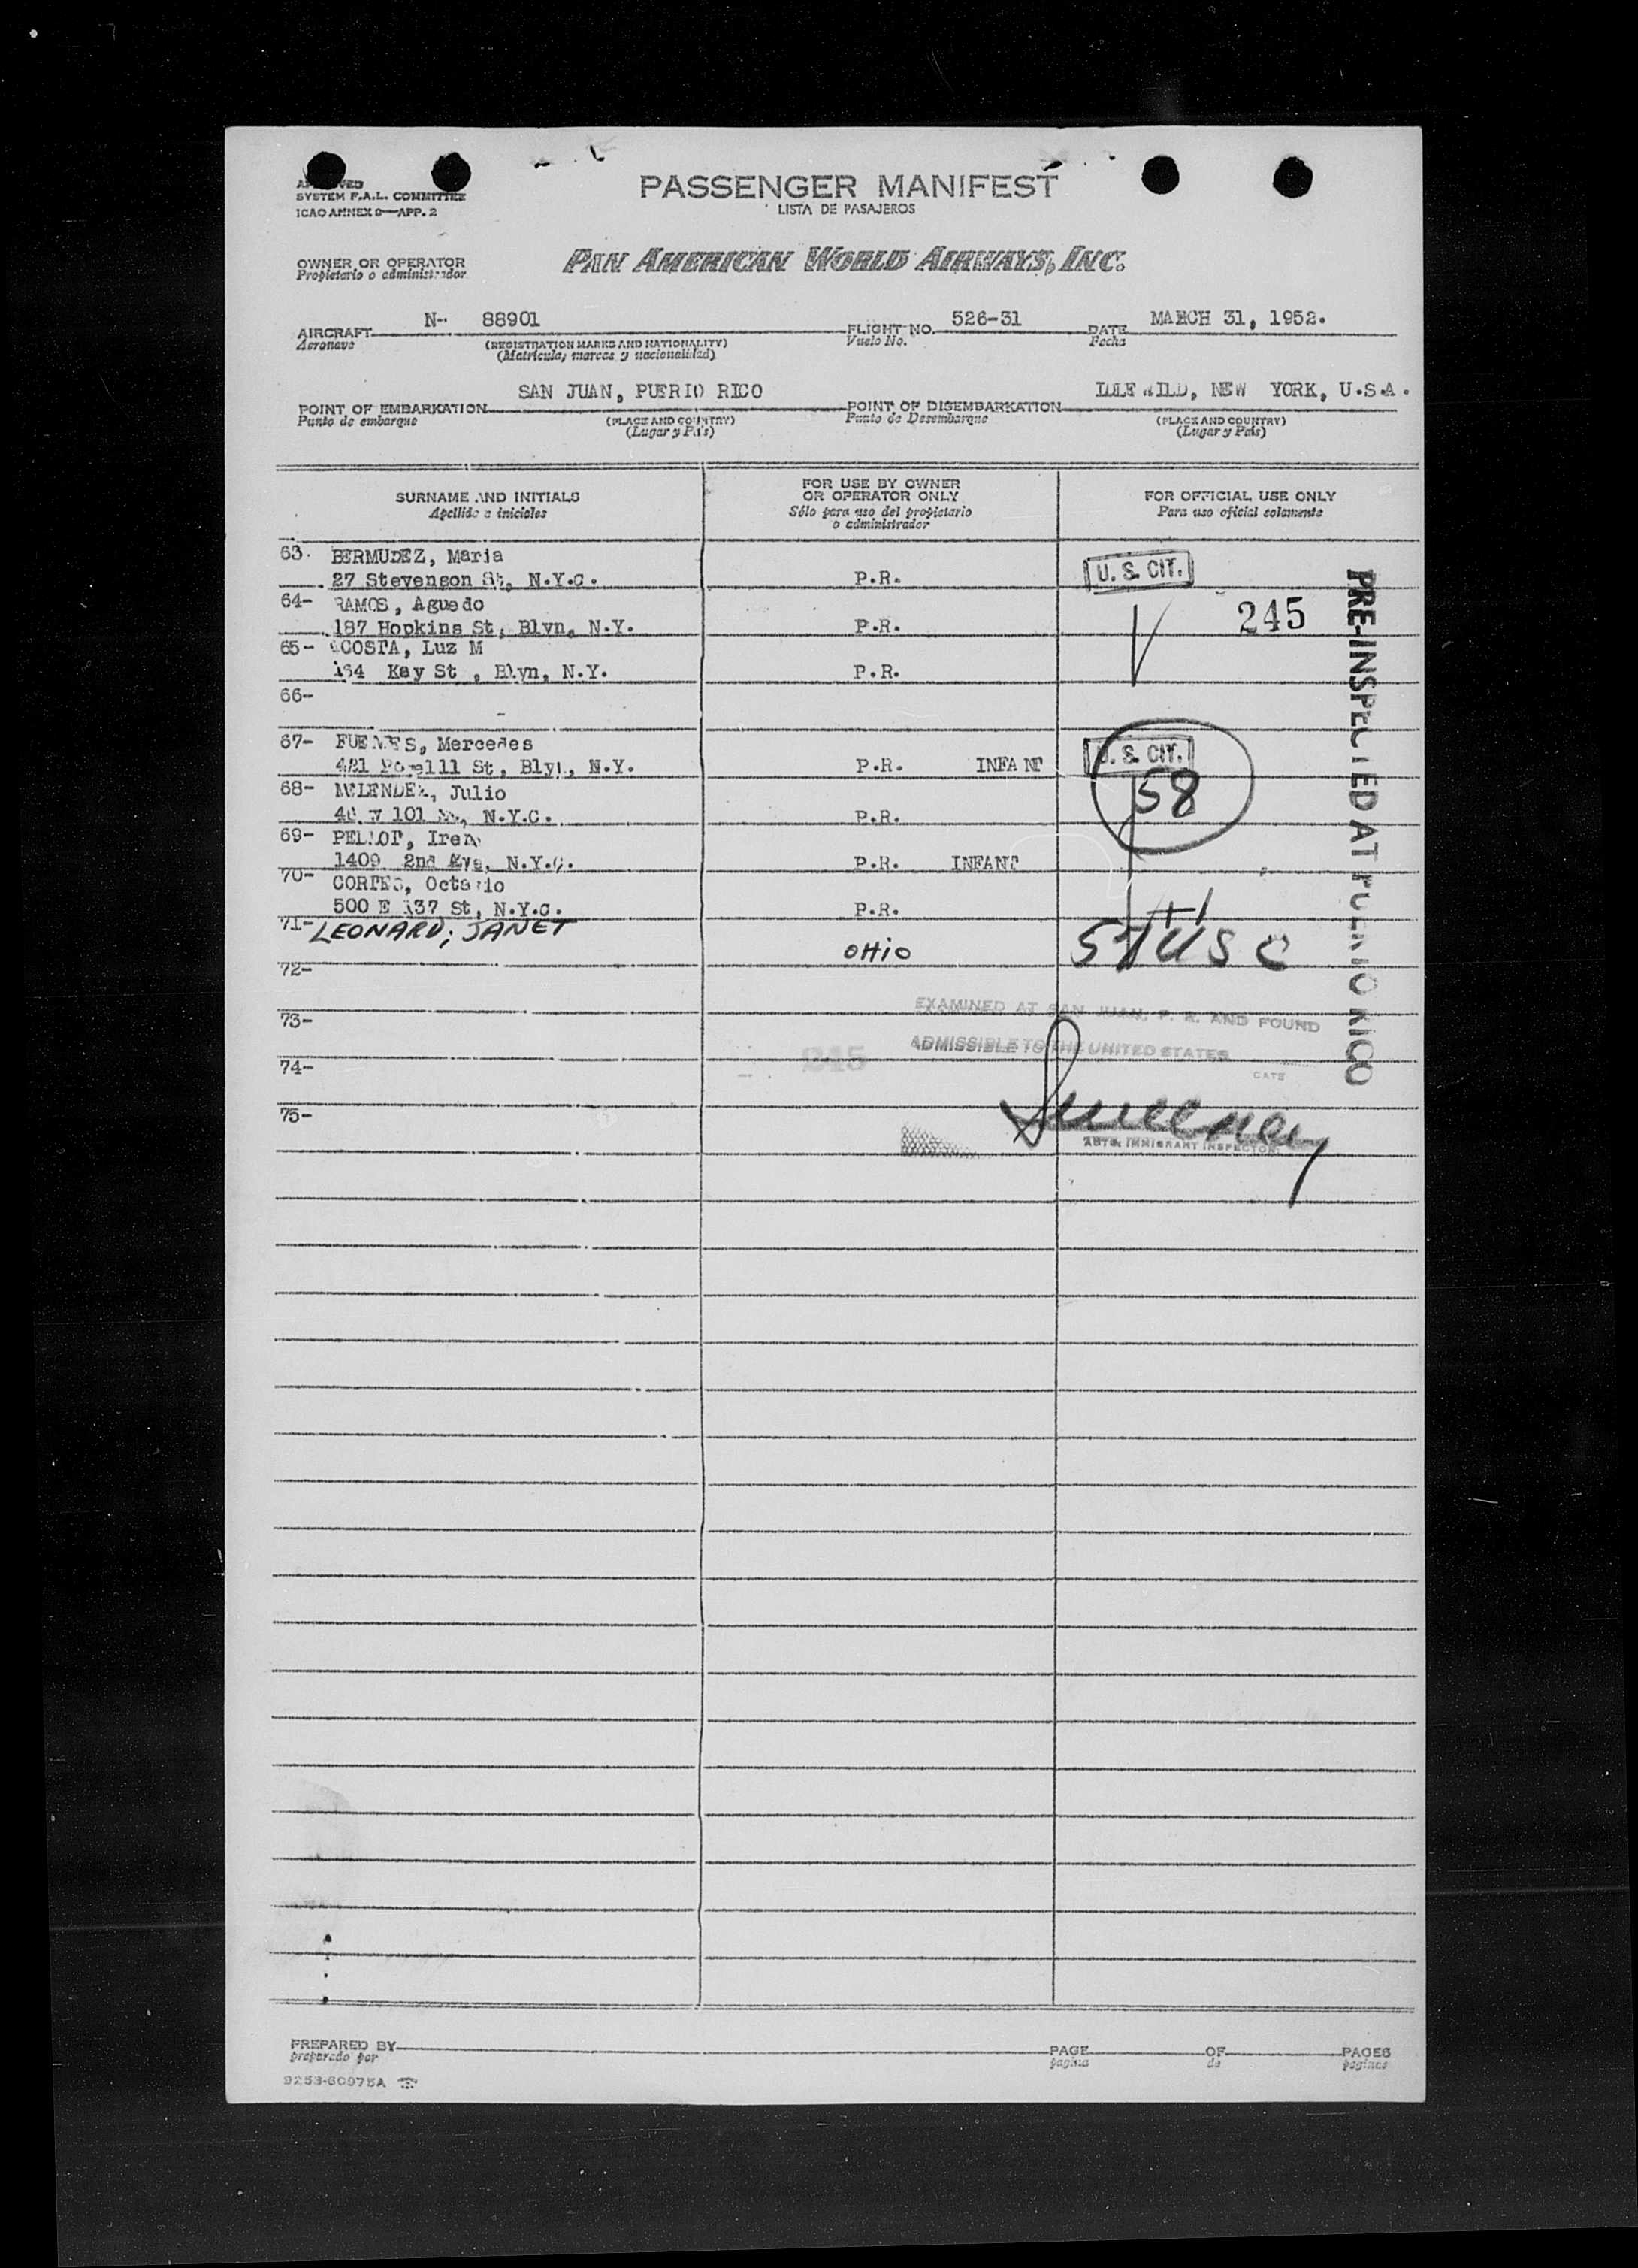 APPROVED
SYSTEM F.A.L. COMMITTEE
ICAO ANNEX 9—APP. 2
PASSENGER MANIFEST
LISTA DE PASAJEROS
OWNER OR OPERATOR
Propietario o administrador
PAN AMERICAN WORLD AIRWAYS, INC.
AIRCRAFT N- 88901 FLIGHT NO. 526-31 DATE MARCH 31, 1952.
Aeronave (REGISTRATION MARKS AND NATIONALITY) Vuelo No. Fecha
(Matricula, marcas y nacionalidad)
POINT OF EMBARKATION SAN JUAN, PUERTO RICO POINT OF DISEMBARKATION IDLEWILD, NEW YORK, U.S.A.
Punto de embarque (PLACE AND COUNTRY) Punto de Desembarque (PLACE AND COUNTRY)
(Lugar y País) (Lugar y País)
SURNAME AND INITIALS FOR USE BY OWNER OR OPERATOR ONLY FOR OFFICIAL USE ONLY
Apellido e iniciales Sólo para uso del propietario o administrador Para uso oficial solamente
63. BERMUDEZ, Maria
27 Stevenson St, N.Y.C. P.R. U. S. CIT.
64- RAMOS, Aguedo 245
187 Hopkins St, Blyn, N.Y. P.R.
65- ACOSTA, Luz M
Kay St, Blyn, N.Y. P.R.
66-
67- FUENTES, Mercedes
St, Blyn, N.Y. P.R. INFANT U. S. CIT.
58
68- MELENDEZ, Julio
W 101 N.Y.C. P.R.
69- PELLOT, Irene
1409 2nd Ave, N.Y.C. P.R. INFANT
70- CORTES, Octavio
500 E 137 St, N.Y.C. P.R.
71- LEONARD, JANET OHIO +1
57 USC
72-
73-
74-
75-
EXAMINED AT SAN JUAN, P. R. AND FOUND
ADMISSIBLE TO THE UNITED STATES
DATE
245
Sweeney
IMMIGRANT INSPECTOR
PRE-INSPECTED AT PUERTO RICO
PREPARED BY PAGE OF PAGES
preparado por pagina de paginas
9253-60975A